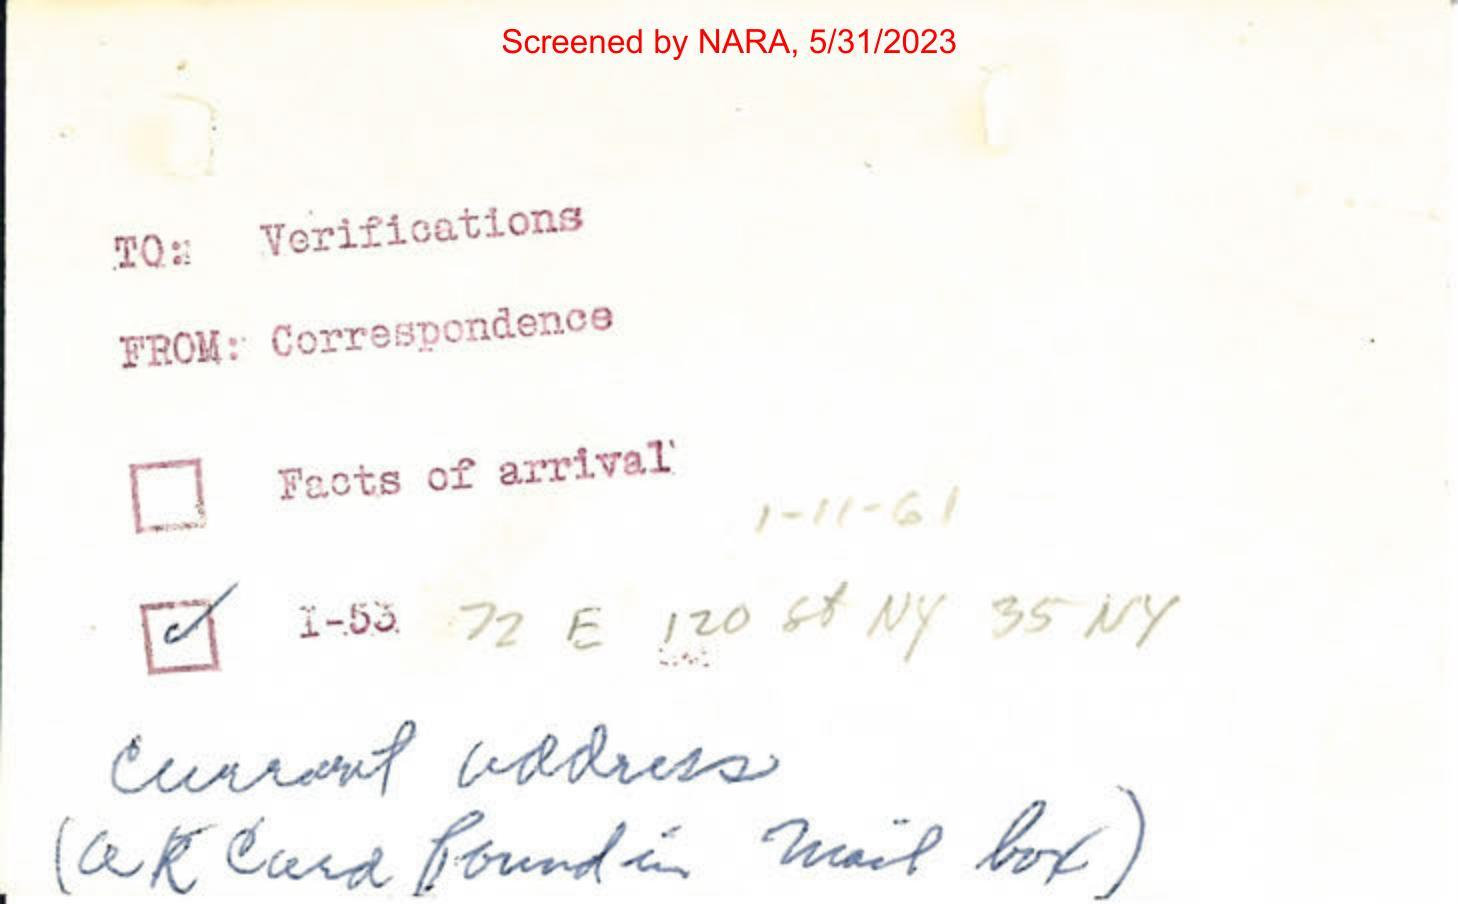 Screened by NARA, 5/31/2023
TO: Verifications
FROM: Correspondence
Facts of arrival
1-11-61
I-53 72 E 120 St NY 35 NY
Current address
(AR Card found in Mail box)